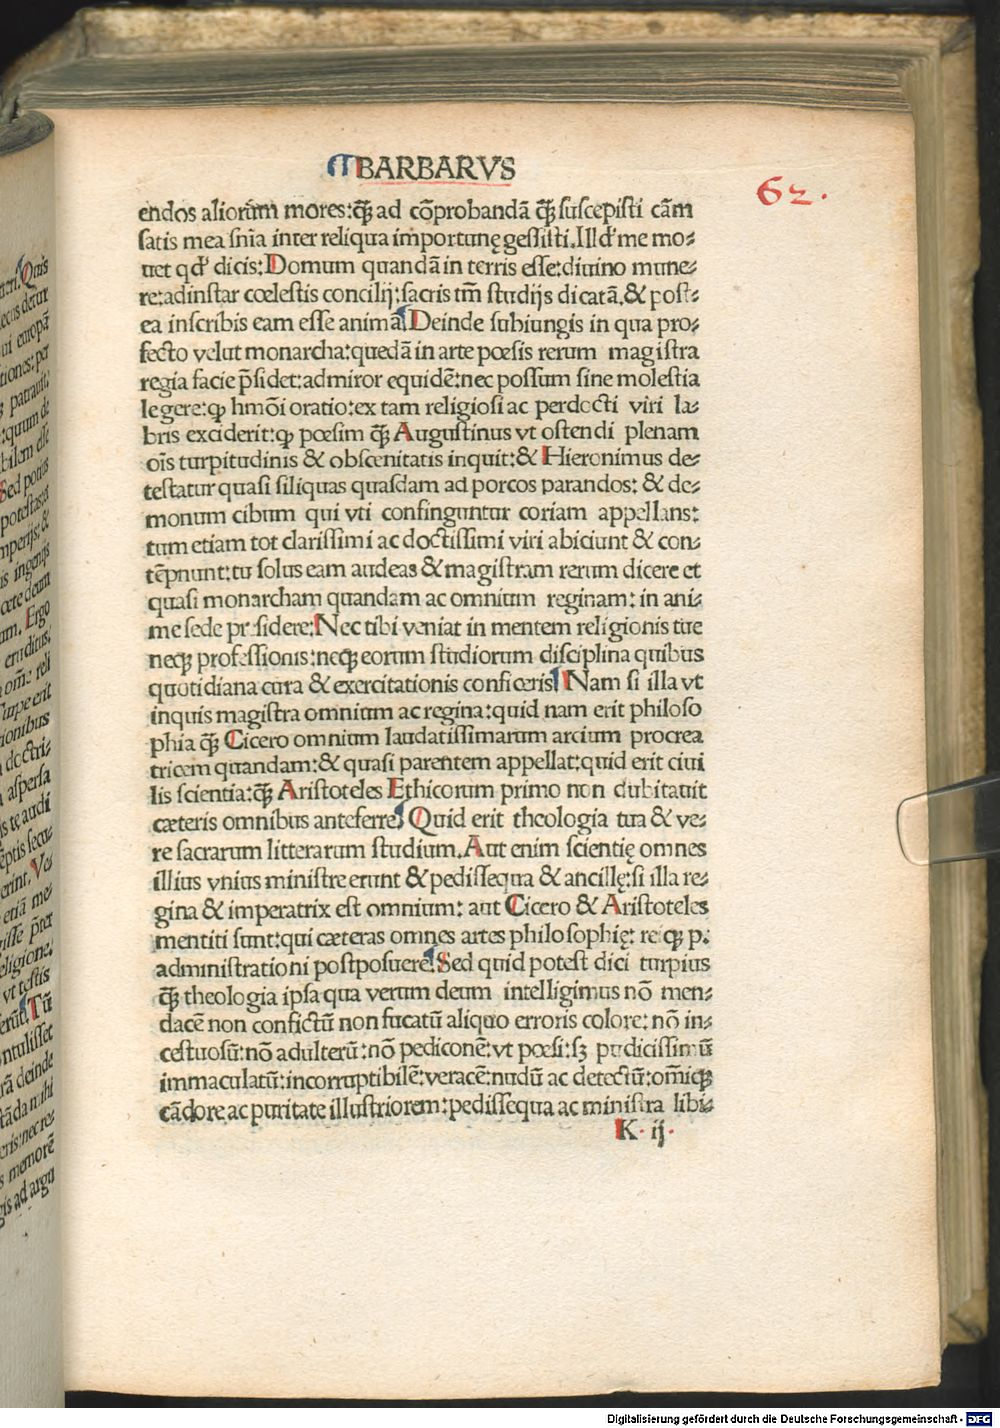 BARBARVS
62.
endos aliorũm mores:q̃ʒ ad cõprobandã q̃ʒ suscepisti cãm
satis mea snĩa inter reliqua importunę gessisti.Illd' me mo⸗
uet qd' dicis:Domum quandã in terris esse:diuino mune⸗
re:adinstar cœlestis concilij:sacris tm̃ studijs dicatã.& post⸗
ea inscribis eam esse animã Deinde subiungis in qua pro⸗
fecto velut monarcha:quedã in arte poesis rerum magistra
regia facie p̃sidet:admiror equidẽ:nec possum sine molestia
legere:ꝙ hmõi oratio:ex tam religiosi ac perdocti viri la⸗
bris exciderit:ꝙ poesim q̃ʒ Augustinus vt ostendi plenam
oĩs turpitudinis & obscenitatis inquit:& Hieronimus de⸗
testatur quasi siliquas quasdam ad porcos parandos: & de⸗
monum cibum qui vti confinguntur coriam appellans:
tum etiam tot clarissimi ac doctissimi viri abiciunt & con⸗
tẽpnunt:tu solus eam audeas & magistram rerum dicere et
quasi monarcham quandam ac omnium reginam: in ani⸗
me sede presidere:Nec tibi veniat in mentem religionis tue
neqʒ professionis:neqʒ eorum studiorum disciplina quibus
quotidiana cura & exercitationis conficeris Nam si illa vt
inquis magistra omnium ac regina:quid nam erit philoso
phia q̃ʒ Cicero omnium laudatissimarum arcium procrea
tricem quandam:& quasi parentem appellat:quid erit ciui
lis scientia:q̃ʒ Aristoteles Ethicorum primo non dubitauit
cæteris omnibus anteferre Quid erit theologia tua & ve⸗
re sacrarum litterarum studium.Aut enim scientię omnes
illius vnius ministre erunt & pedissequa & ancillę:si illa re⸗
gina & imperatrix est omnium: aut Cicero & Aristoteles
mentiti sunt:qui cæteras omnes artes philosophię: reiqʒ p.
administrationi postposuere Sed quid potest dici turpius
q̃ʒ theologia ipsa qua verum deum intelligimus nõ men⸗
dacẽ non confictũ non fucatũ aliquo erroris colore: nõ in⸗
cestuosũ:nõ adulterũ:nõ pediconẽ:vt poesi:sʒ pudicissimũ
immaculatũ:incorruptibilẽ:veracẽ:nudũ ac detectũ:om̃iqʒ
cãdore ac puritate illustriorem:pedissequa ac ministra libi⸗
K. ij.
Digitalisierung gefördert durch die Deutsche Forschungsgemeinschaft - DFG